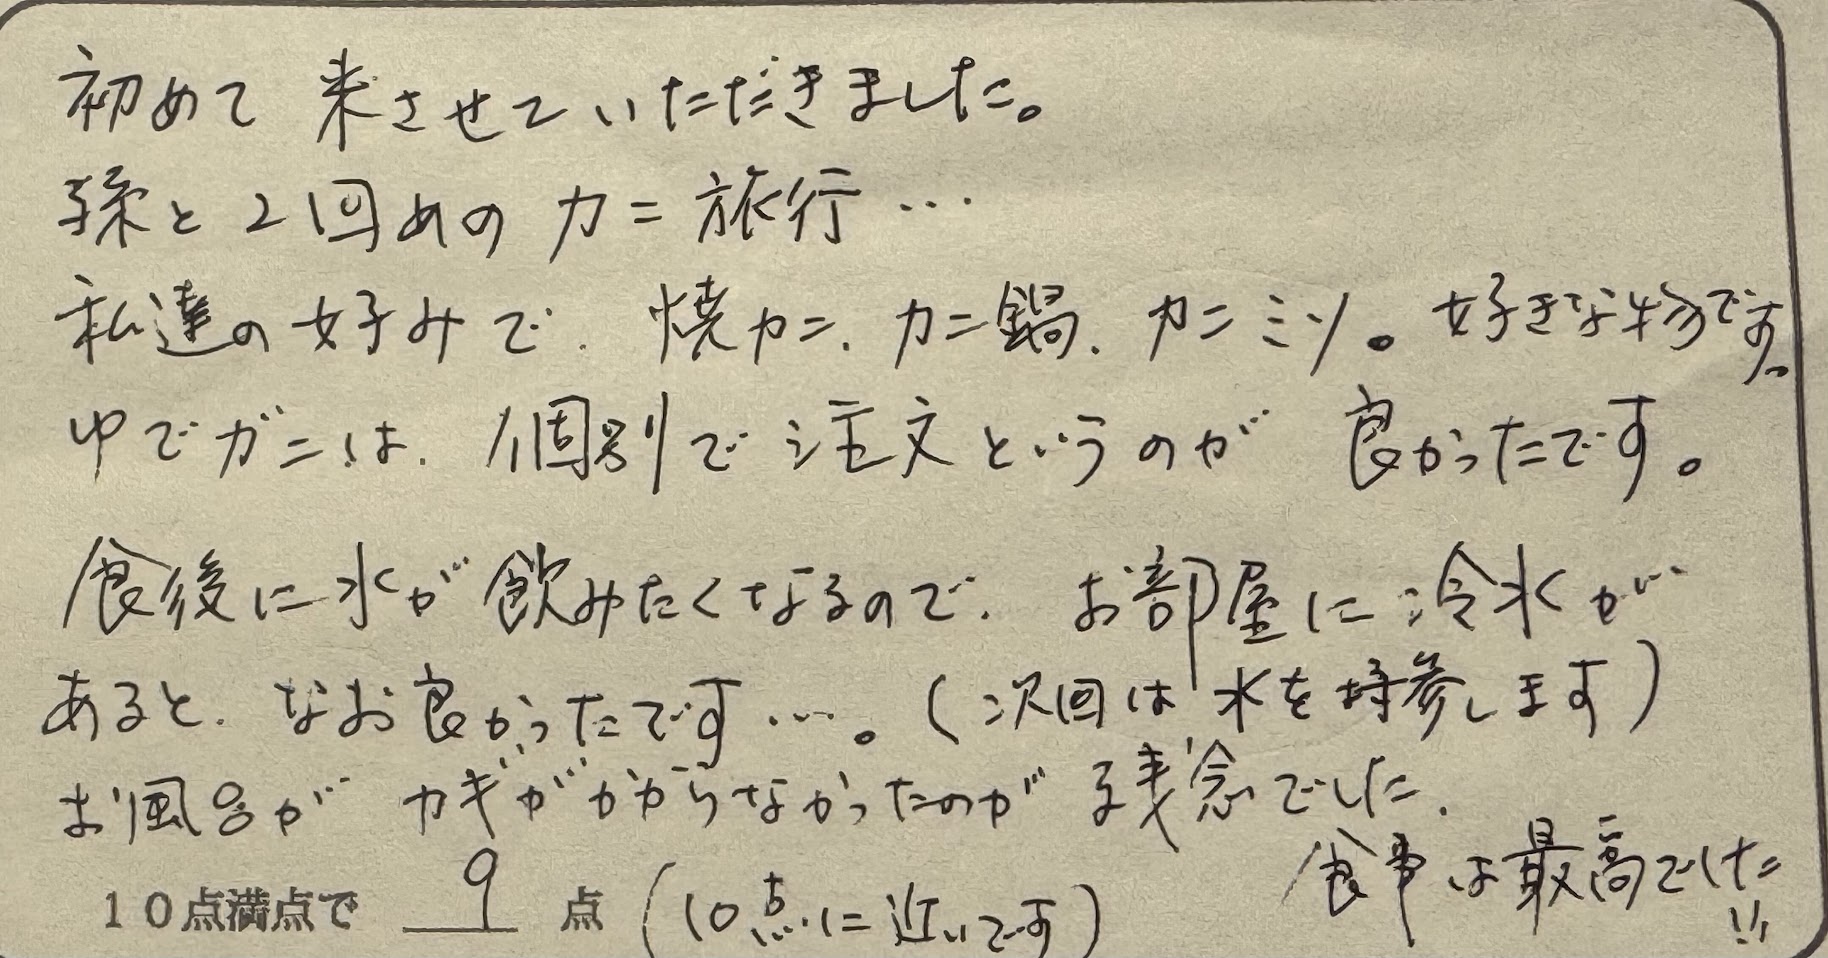 初めて 来させていただきました。
孫と2回めの カニ旅行…
私達の好みで、焼カニ、カニ鍋、カニミソ。好きな物です。
ゆでガニは、個別で注文というのが 良かったです。
食後に水が飲みたくなるので、お部屋に冷水が
あると、なお良かったです…。(次回は水を持参します)
お風呂が カギがかからなかったのが 残念でした。
食事は最高でした!!
10点満点で 9 点 (10点に近いです)